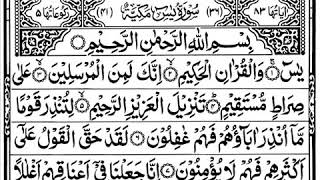 اٰیَاتُهَا ۸۳ (۳۶) سُوْرَةُ یٰسٓ مَكِّیَّةٌ (۴۱) رُكُوْعَاتُهَا ۵
بِسْمِ اللّٰهِ الرَّحْمٰنِ الرَّحِیْمِ
یٰسٓ ۚ﴿۱﴾ وَ الْقُرْاٰنِ الْحَكِیْمِ ۙ﴿۲﴾ اِنَّكَ لَمِنَ الْمُرْسَلِیْنَ ۙ﴿۳﴾ عَلٰی
صِرَاطٍ مُّسْتَقِیْمٍ ؕ﴿۴﴾ تَنْزِیْلَ الْعَزِیْزِ الرَّحِیْمِ ۙ﴿۵﴾ لِتُنْذِرَ قَوْمًا
مَّاۤ اُنْذِرَ اٰبَآؤُهُمْ فَهُمْ غٰفِلُوْنَ ﴿۶﴾ لَقَدْ حَقَّ الْقَوْلُ عَلٰۤی
اَكْثَرِهِمْ فَهُمْ لَا یُؤْمِنُوْنَ ﴿۷﴾ اِنَّا جَعَلْنَا فِیْۤ اَعْنَاقِهِمْ اَغْلٰلًا